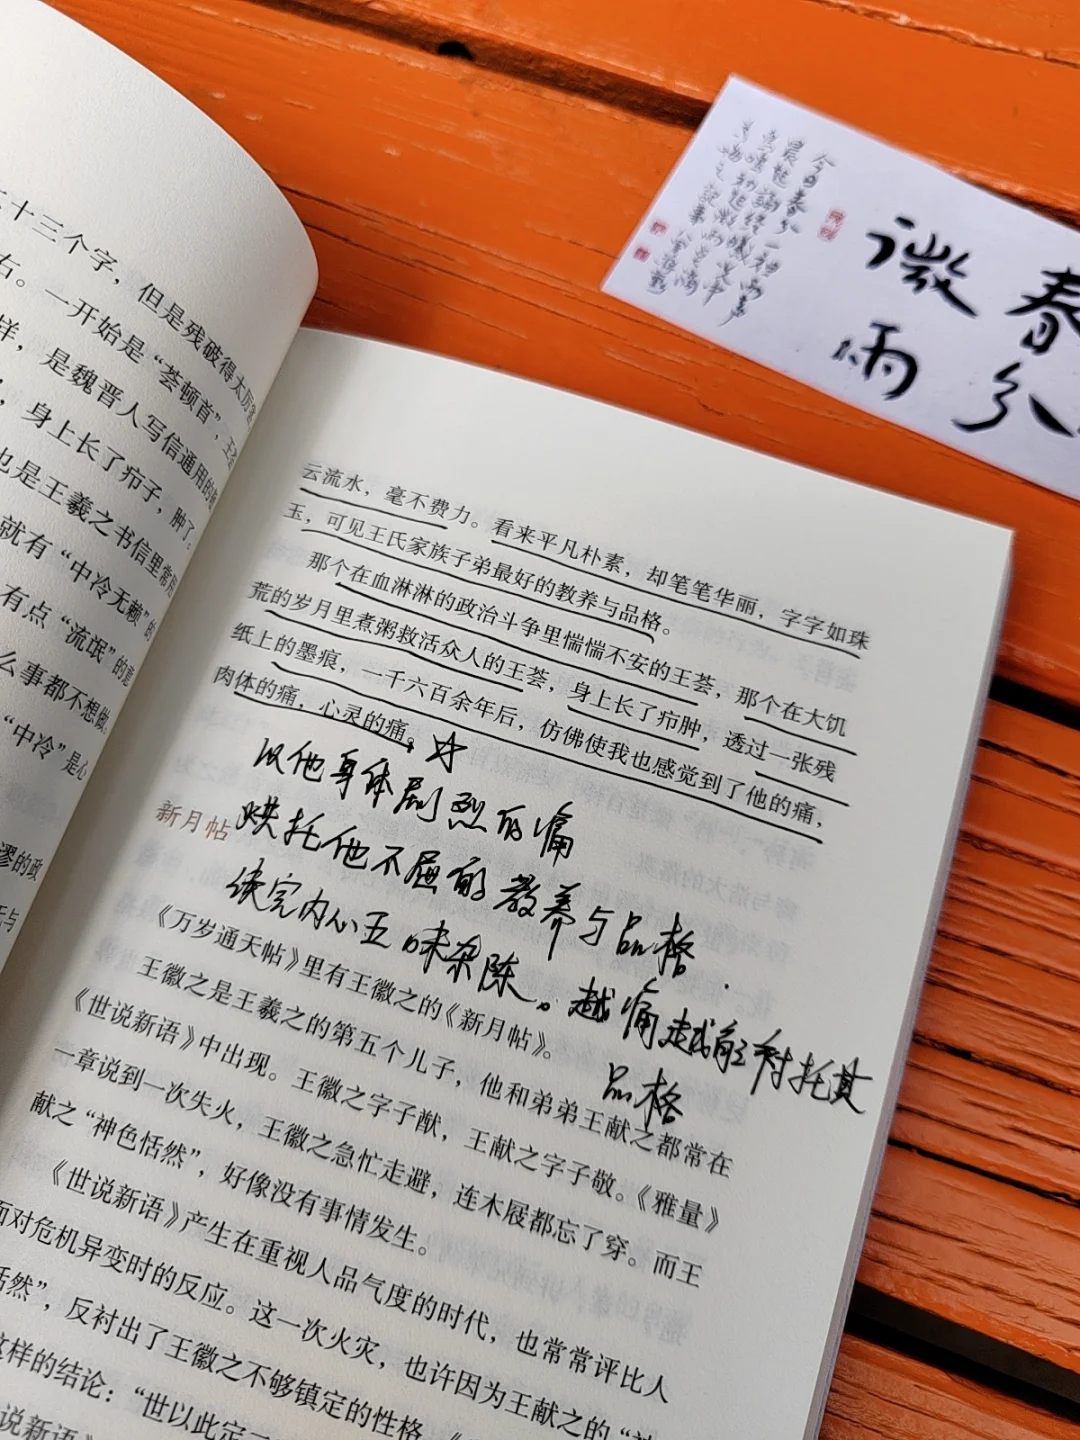 三十三个字，但是残破得太厉害
右。一开始是“荟顿首”，王荟
样，是魏晋人写信通用的
，身上长了疖子，肿了。
也是王羲之书信里常
就有“中冷无赖”的
有点“流氓”的意
么事都不想做。
“中冷”是心
谬的政
云流水，毫不费力。看来平凡朴素，却笔笔华丽，字字如珠
玉，可见王氏家族子弟最好的教养与品格。
那个在血淋淋的政治斗争里惴惴不安的王荟，那个在大饥
荒的岁月里煮粥救活众人的王荟，身上长了疖肿，透过一张残
纸上的墨痕，一千六百余年后，仿佛使我也感觉到了他的痛，
肉体的痛，心灵的痛。☆
以他身体剧烈的痛
烘托他不屈的教养与品格
读完内心五味杂陈。越痛越能衬托其
品格
新月帖
《万岁通天帖》里有王徽之的《新月帖》。
王徽之是王羲之的第五个儿子，他和弟弟王献之都常在
《世说新语》中出现。王徽之字子猷，王献之字子敬。《雅量》
一章说到一次失火，王徽之急忙走避，连木屐都忘了穿。而王
献之“神色恬然”，好像没有事情发生。
《世说新语》产生在重视人品气度的时代，也常常评比人
面对危机异变时的反应。这一次火灾，也许因为王献之的“神
恬然”，反衬出了王徽之不够镇定的性格。《
这样的结论：“世以此定二
说新语》
春分
微雨
今日春分